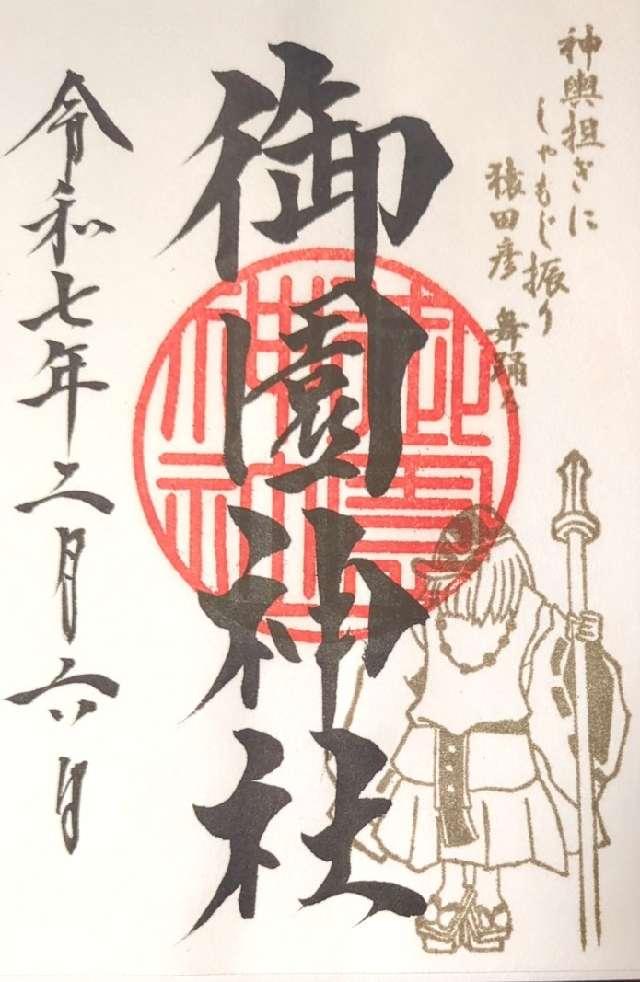 神輿担ぎに
しゃもじ振り
猿田彦 舞踊る
御園神社
令和七年二月六日